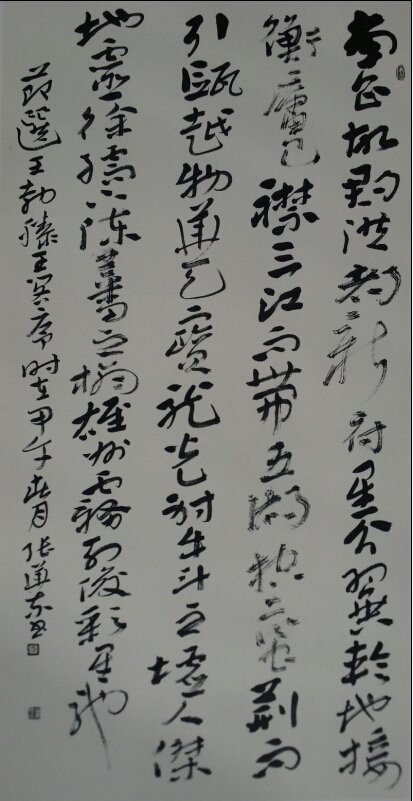 南昌故郡洪都新府星分翼軫地接
衡廬襟三江而帶五湖控蠻荊而
引甌越物華天寶龍光射牛斗之墟人傑
地靈徐孺下陳蕃之榻雄州霧列俊彩星馳
節選王勃滕王閣序時在甲午春月張華書